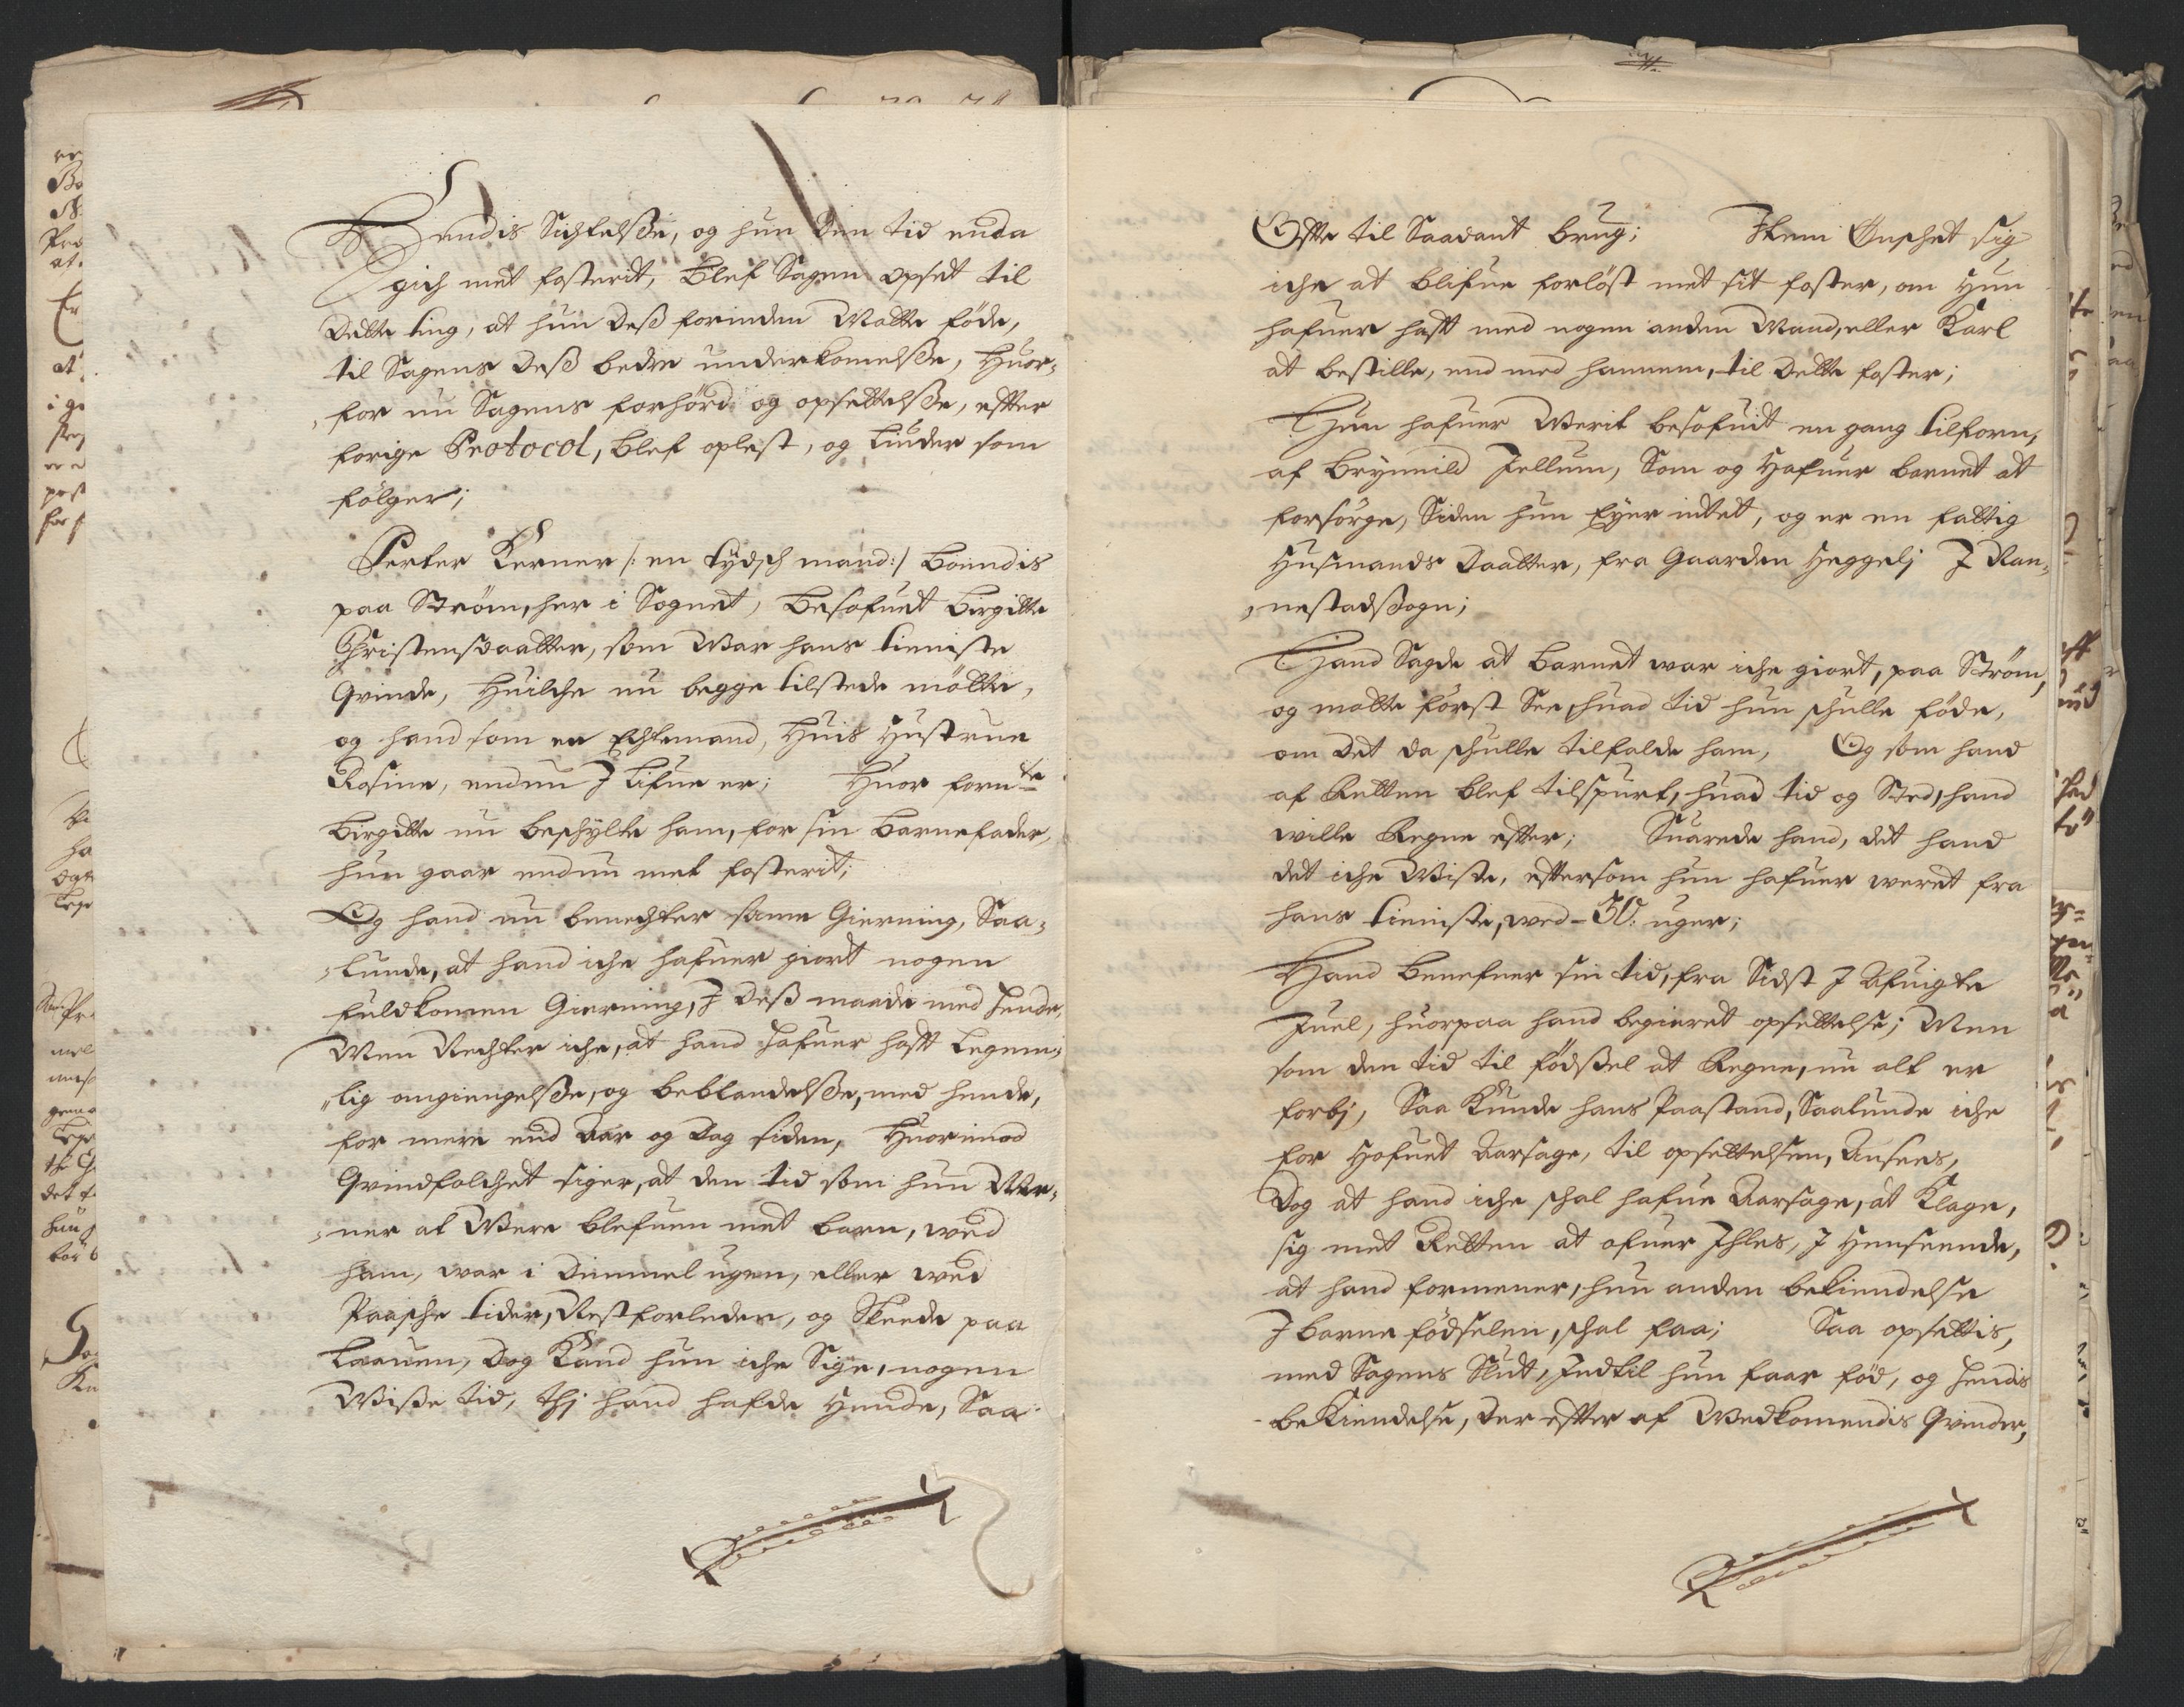 Hendis Sichtelsße, og hun den tid enda
gich met fosterit, blef Sagen opset til
dette ting, at hun deß forinden Motte føde,
til Sagens deß bedre underkomelsße, Huor-
for nu Sagens forhørd og opsettelsße, effter
forige Protocol, blef oplest, og liuder som
følger;
Perter Kerner /: en tydsch mand:/ boindis
paa Strøm, her i Sognet, besofuet Birgitte
Christensdaatter, som War hans tieniste
Qvinde, Huilche nu begge tilstede møtte,
og hand som en Echtemand, Huis Hustrue
Rosine, endnu J lifue er; Huor fornte
Birgitte nu beschylte ham, for sin barnefader,
hun gaar endnu met fosterit;
Og hand nu benechter same Gierning, Saa-
lunde, at hand iche hafuer giort nogen
fuldkomen Gierning, J deß maade med hende,
Men Nechter iche, at hand hafuer hafft legem-
lig omgiengelsße, og beblandelsße, med hende,
for mere end Aar og dag siden, Huorimod
Qvindfolchet siger, at den tid som hun Me-
ner at Were blefuen met barn, wed
ham, war i dimmel ugen, eller wed
Paasche tider, Nestforleden, og Skeede paa
laauen, dog Kand hun iche Sige, nogen
Wiße tid, thj hand hafde Hende, Saa
Offte til Saadant brug; Item Ønschet sig
iche at blifue forløst met sit foster, om Hun
hafuer hafft med nogen anden Mand, eller Karl
at bestille, end med hannem, til dette foster;
Hun hafuer Werit besofuit en gang tilforn,
af Brynnild Jellum, Som og Hafuer barnet at
forsørge, Siden hun Eyer intet, og er en fattig
Husmands daatter, fra Gaarden Heggelj J Ran-
nestadßogn;
Hand Sagde at barnet war iche giort, paa Strøm,
og motte først See, huad tid hun schulle føde,
om det da schulle tilfalde ham, Og som hand
af Retten blef tilspurt, huad tid og Sted, hand
wille Regne effter; Suarede hand, det hand
det iche Wiste, efftersom hun hafuer weret fra
hans tieniste, wed - 30: uger;
Hand benefner sin tid, fra Sidst J Afuigte
Juel, huorpaa hand begieret opsettelse; Men
som den tid til fødßel at Regne, nu alt er
forbj, Saa Kunde hans Paastand, Saalunde iche
for Hofuet Aarsage, til opsettelsen, Ansees,
Dog at hand iche schal hafue Aarsage, at Klage,
sig met Retten at ofuer Jhles, J Henseende,
at hand formener, hun anden bekiendelse
J barne fødselen, schal faa; Saa opsettis,
med Sagens Slut, Indtil hun faar fød, og hendis
beKiendelse, der effter af Wedkomendis Qvinder,